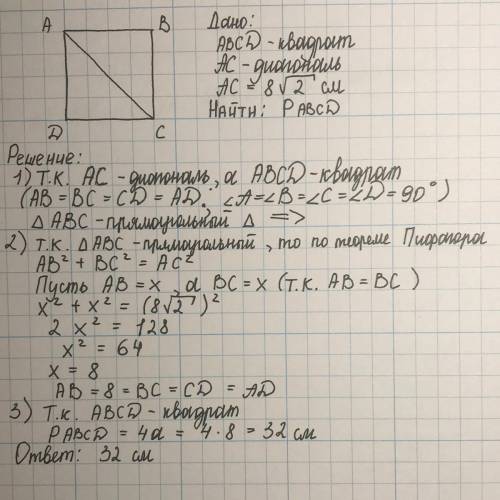 A B
D C
Дано:
ABCD - квадрат
AC - диагональ
AC = 8√2 см
Найти: PABCD
Решение:
1) Т.к. AC - диагональ, а ABCD - квадрат
(AB = BC = CD = AD. ∠A=∠B=∠C=∠D = 90°)
△ ABC - прямоугольный △ =>
2) т.к. △ABC - прямоугольный, то по теореме Пифагора
AB² + BC² = AC²
Пусть AB = x, а BC = x (т.к. AB = BC)
x² + x² = (8√2)²
2 x² = 128
x² = 64
x = 8
AB = 8 = BC = CD = AD
3) Т.к. ABCD - квадрат
PABCD = 4a = 4·8 = 32 см
Ответ: 32 см